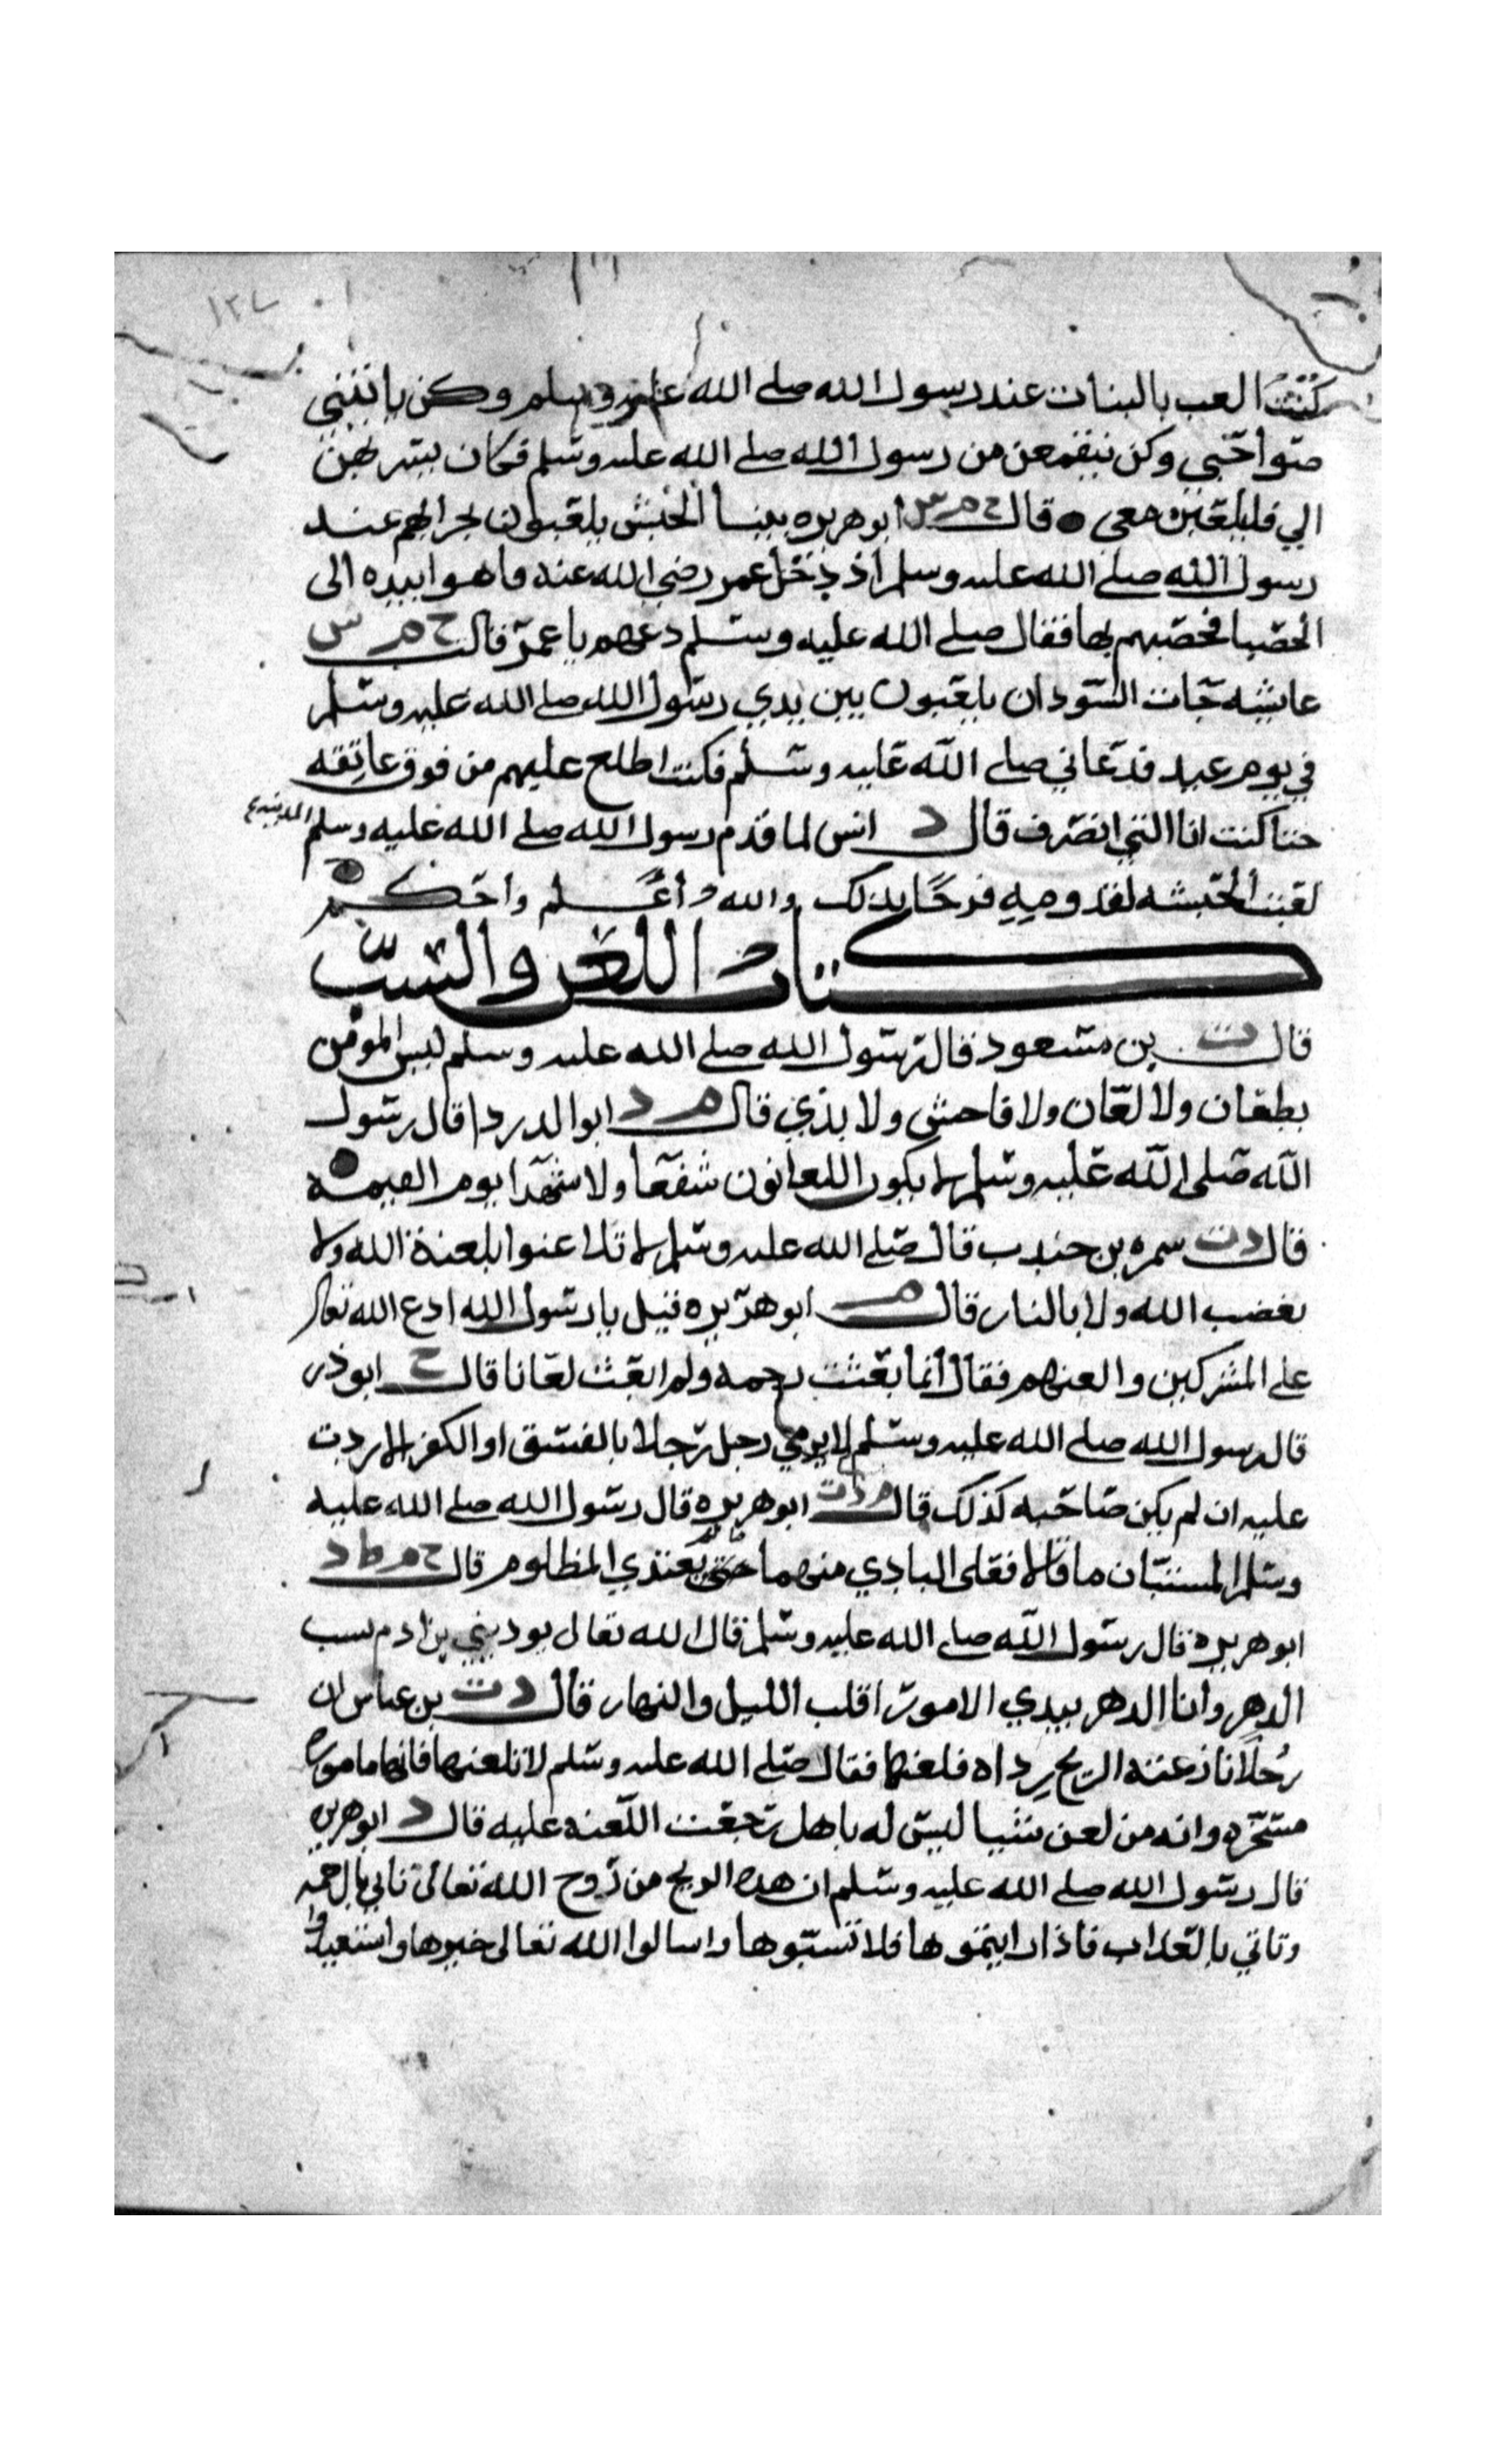 ١٢٧
كنت العب بالبنات عند رسول الله صلى الله عليه وسلم وكن ياتينني
صواحبي وكن ينقمعن من رسول الله صلى الله عليه وسلم فكان يسربهن
الي فليلعبن معي قال ح م س ابو هريره بينا الحبش يلعبون بحرابهم عند
رسول الله صلى الله عليه وسلم اذ دخل عمر رضي الله عنه فاهوا بيده الى
الحصبا فحصبهم بها فقال صلى الله عليه وسلم دعهم يا عمر قالت ح م س
عايشه جات السودان يلعبون بين يدي رسول الله صلى الله عليه وسلم
في يوم عيد فدعاني صلى الله عليه وسلم فكنت اطلع عليهم من فوق عاتقه
حتا كنت انا التي انصرف قال د انس لما قدم رسول الله صلى الله عليه وسلم المدينه
لعبت الحبشه لقدومه فرحا بذلك والله أعلم وأحكم
كتاب اللعن والسب
قال دت بن مسعود قال رسول الله صلى الله عليه وسلم ليس المومن
بطعان ولا لعان ولا فاحش ولا بذي قال م د ابو الدردا قال رسول
الله صلى الله عليه وسلم لا يكون اللعانون شفعا ولا شهدا يوم القيمه
قال دت سمره بن جندب قال صلى الله عليه وسلم لا تلاعنوا بلعنة الله ولا
بغضب الله ولا بالنار قال م ابو هريره قيل يا رسول الله ادع الله تعالى
على المشركين والعنهم فقال انما بعثت رحمه ولم ابعث لعانا قال ح ابو ذر
قال رسول الله صلى الله عليه وسلم لا يرمي رجل رجلا بالفسق او الكفر الا ردت
عليه ان لم يكن صاحبه كذلك قال م د ت ابو هريره قال رسول الله صلى الله عليه
وسلم المستبان ما قالا فعلى البادي منهما حتى يعتدي المظلوم قال ح م ط د
ابو هريره قال رسول الله صلى الله عليه وسلم قال الله تعالى يوديني بن ادم يسب
الدهر وانا الدهر بيدي الامور اقلب الليل والنهار قال د ت بن عباس ان
رجلا نازعته الريح رداه فلعنها فقال صلى الله عليه وسلم لا تلعنها فانها ماموره
مسخره وانه من لعن شيا ليس له باهل رجعت اللعنه عليه قال د ابو هريره
قال رسول الله صلى الله عليه وسلم ان هذه الريح من روح الله تعالى تاتي بالرحمه
وتاتي بالعذاب فاذا رايتموها فلا تسبوها واسالوا الله تعالى خيرها واستعيذوا